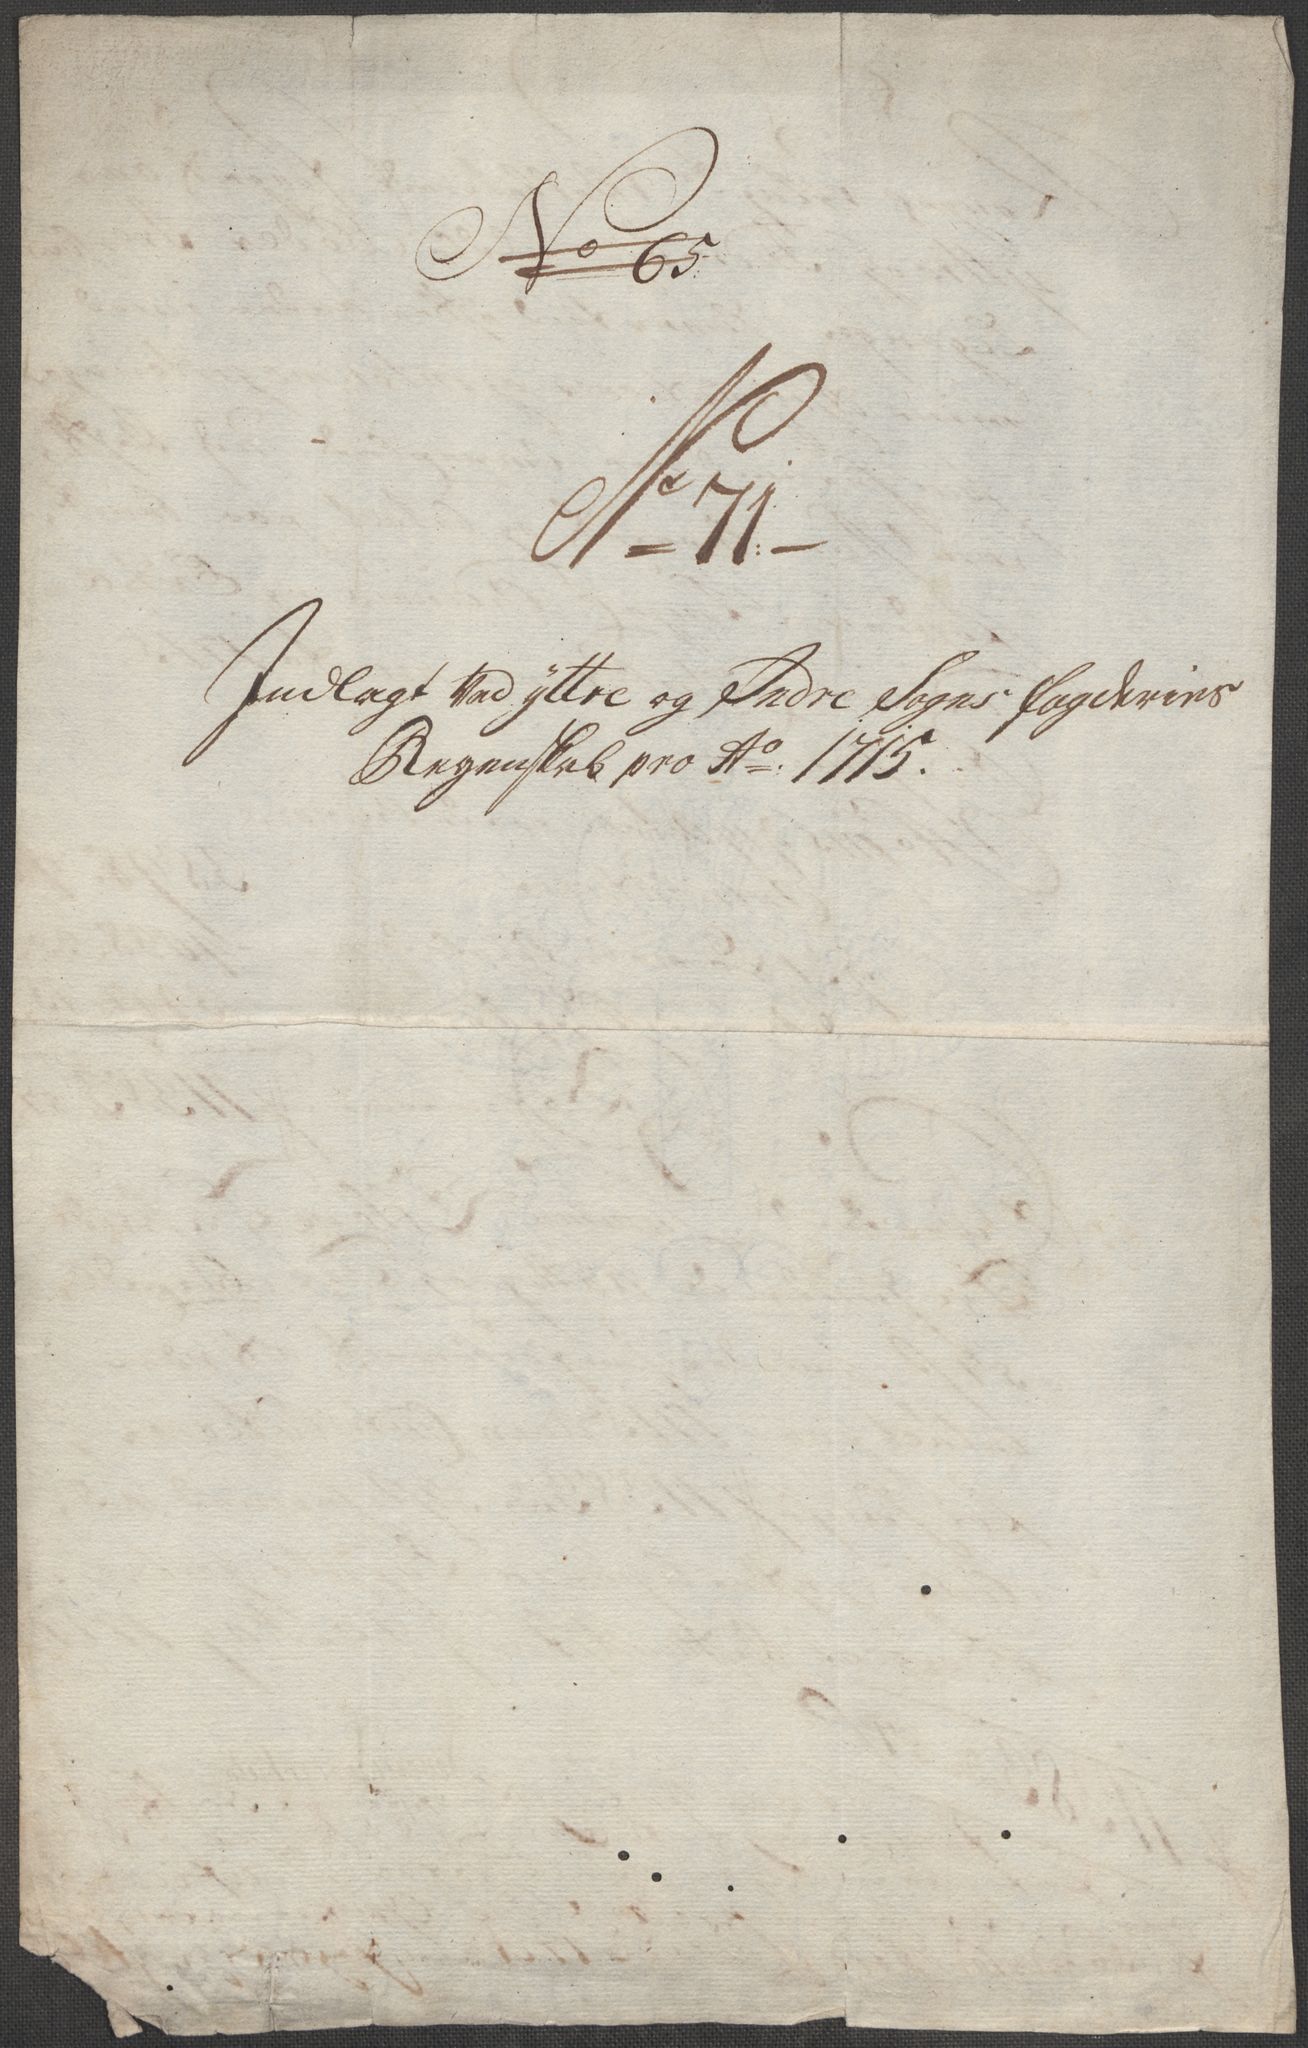 No 65
No 71.
Indlagt Ved ÿttre og Indre Sogns fogderies
Regenskab pro Ao: 1715.